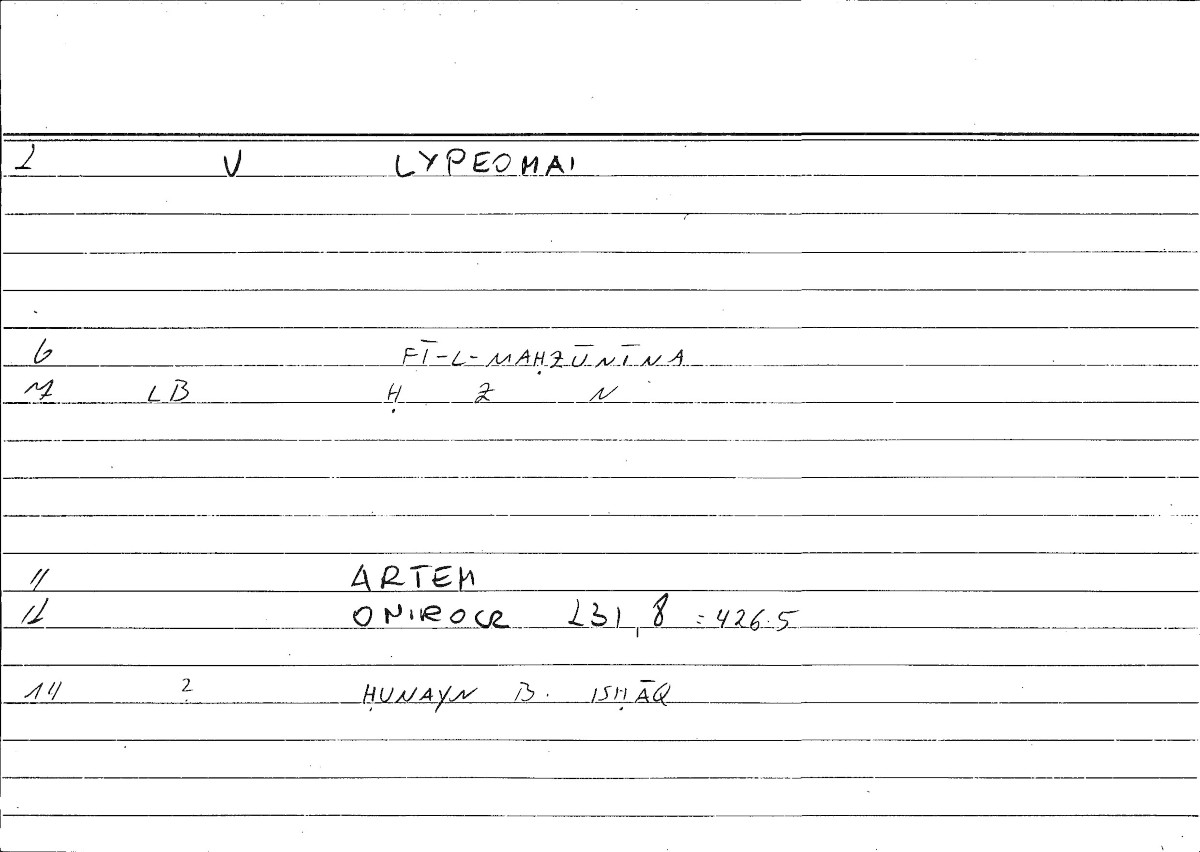 2 V LYPEOMAI
6 FĪ-L-MAḤZŪNĪNA
7 LB Ḥ Z N
11 ARTEM
12 ONIROCR 231,8 = 426.5
14 2 ḤUNAYN B. ISḤĀQ